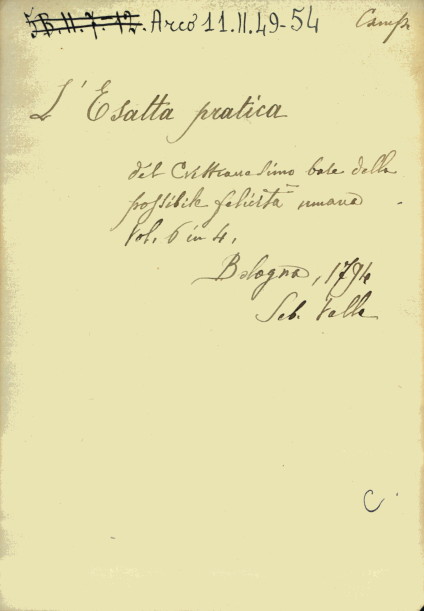 5B.II.7-12. Arco 11.II.49-54
L'Esatta pratica
del Cristianesimo base della
possibile felicità umana
Vol. 6 in 4.
Bologna, 1794
Seb. Valle
C.